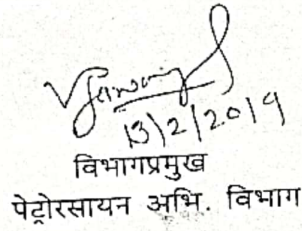 13/2/2019
विभागप्रमुख
पेट्रोरसायन अभि. विभाग